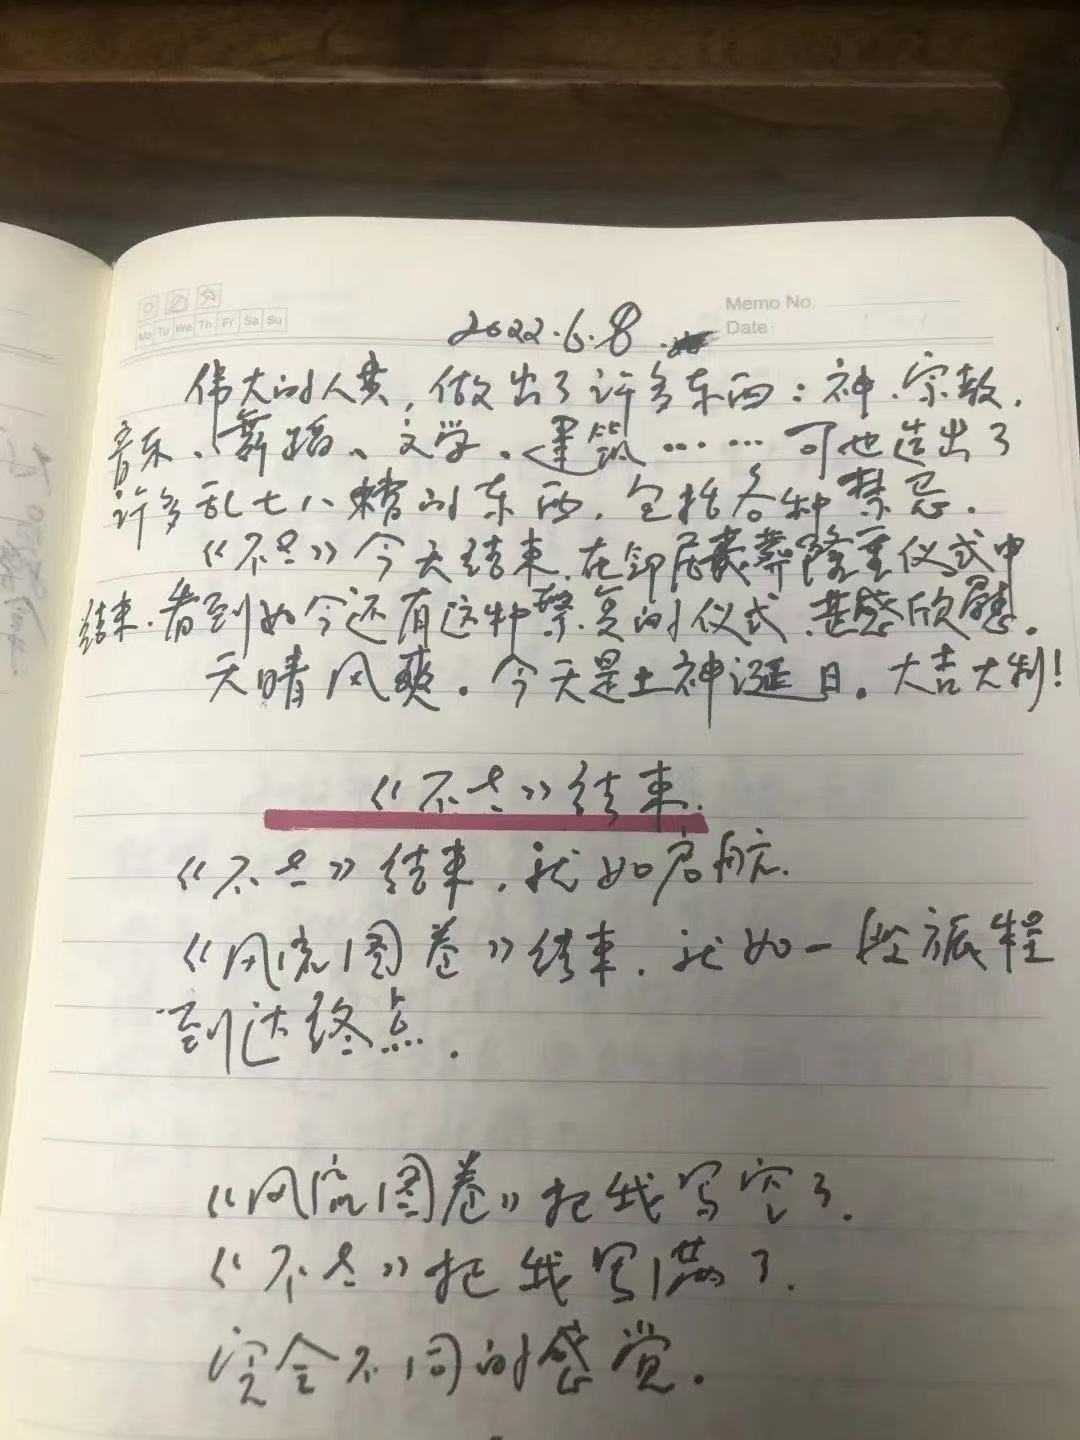 Mo Tu We Th Fr Sa Su
Memo No.
Date
2022.6.8
伟大的人类，做出了许多东西：神、宗教、
音乐、舞蹈、文学、建筑……可也造出了
许多乱七八糟的东西，包括各种禁忌。
《不尽》今天结束，在邻居丧葬隆重仪式中
结束，看到如今还有这种繁复的仪式，甚感欣慰。
天晴风爽。今天是土神诞日。大吉大利！
《不尽》结束
《不尽》结束，就如启航。
《风流图卷》结束，就如一段旅程
到达终点。
《风流图卷》把我写空了。
《不尽》把我写满了。
完全不同的感觉。